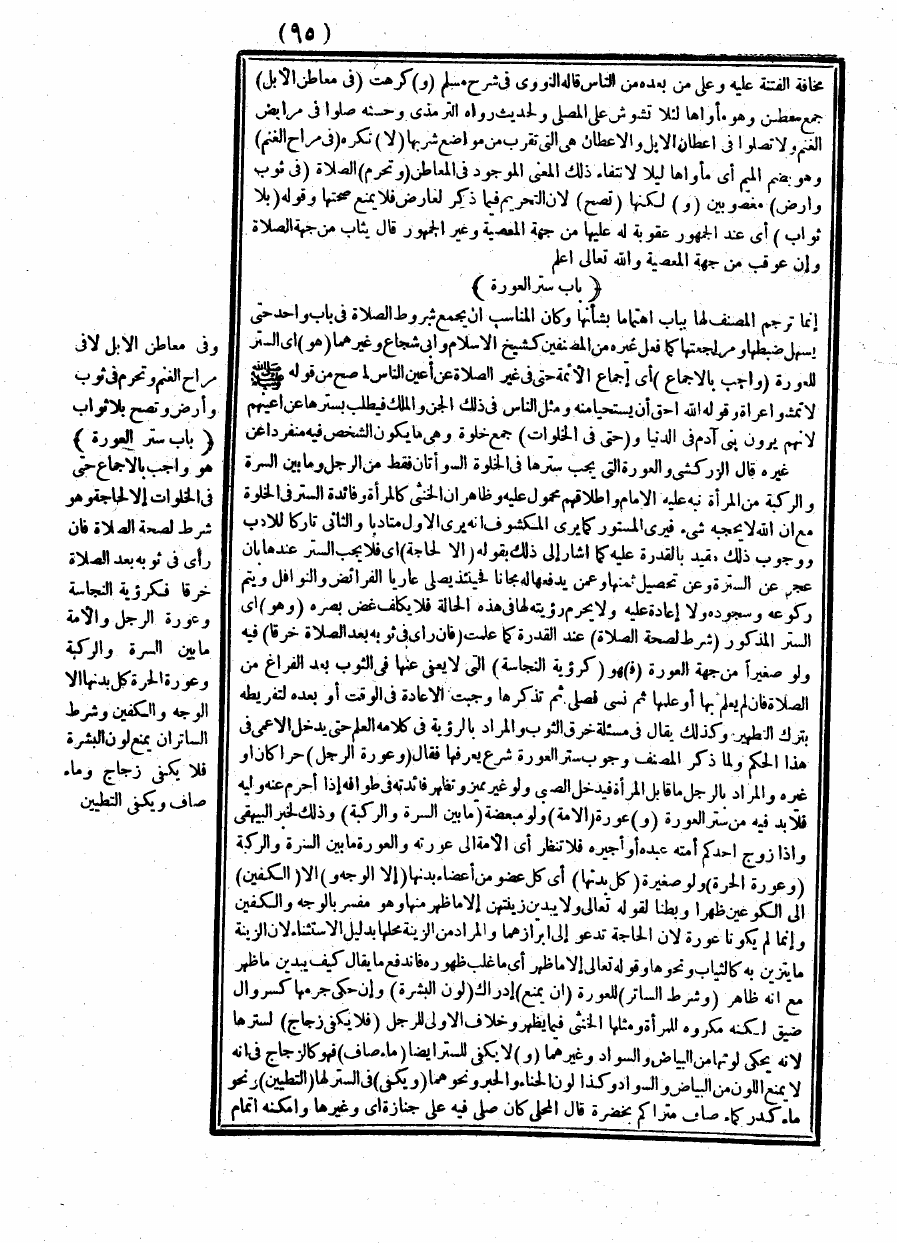 (٩٥)
مخافة الفتنة عليه وعلى من بعده من الناس قاله النووى فى شرح مسلم (و) كرهت (فى معاطن الابل)
جمع معطن وهو مأواها لئلا تشوش على المصلى ولحديث رواه الترمذى وحسنه صلوا فى مرابض
الغنم ولا تصلوا فى اعطان الابل والاعطان هى التى تقرب من مواضع شربها (لا) تكره (فى مراح الغنم)
وهو بضم الميم أى مأواها ليلا لانتفاء ذلك المعنى الموجود فى المعاطن (وتحرم) الصلاة (فى ثوب
وارض) مغصوبين (و) لكنها (تصح) لان التحريم فيما ذكر لعارض فلا يمنع صحتها وقوله (بلا
ثواب) أى عند الجمهور عقوبة له عليها من جهة المعصية وغير الجمهور قال يثاب من جهة الصلاة
وإن عوقب من جهة المعصية والله تعالى اعلم
﴿ باب ستر العورة ﴾
إنما ترجم المصنف لها بباب اهتماما بشأنها وكان المناسب ان يجمع شروط الصلاة فى باب واحد حتى
يسهل ضبطها ومراجعتها كما فعل غيره من المصنفين كشيخ الاسلام وابى شجاع وغيرهما (هو) اى الستر
للعورة (واجب بالاجماع) أى إجماع الأئمة حتى فى غير الصلاة عن أعين الناس لما صح من قوله ﷺ
لا تمشوا عراة وقوله الله احق أن يستحيا منه ومثل الناس فى ذلك الجن والملك فيطلب بسترها عن اعينهم
لانهم يرون بنى آدم فى الدنيا و(حتى فى الخلوات) جمع خلوة وهى ما يكون الشخص فيه منفردا عن
غيره قال الزركشى والعورة التى يجب سترها فى الخلوة السوأتان فقط من الرجل وما بين السرة
والركبة من المرأة نبه عليه الامام واطلاقهم محمول عليه وظاهر ان الخنثى كالمرأة وفائدة الستر فى الخلوة
مع ان الله لا يحجبه شىء فيرى المستور كما يرى المكشوف انه يرى الاول متادبا والثانى تاركا للادب
ووجوب ذلك مقيد بالقدرة عليه كما اشار إلى ذلك بقوله (الا لحاجة) اى فلا يجب الستر عندها بان
عجز عن السترة وعن تحصيل ثمنها وعمن يدفعها له مجانا فحينئذ يصلى عاريا الفرائض والنوافل ويتم
ركوعه وسجوده ولا إعادة عليه ولا يحرم رؤيته لها فى هذه الحالة فلا يكلف غض بصره (وهو) اى
الستر المذكور (شرط لصحة الصلاة) عند القدرة كما علمت (فان راى فى ثوبه بعد الصلاة خرقا) فيه
ولو صغيراً من جهة العورة (ف) هو (كرؤية النجاسة) التى لا يعفى عنها فى الثوب بعد الفراغ من
الصلاة فان لم يعلم بها أو علمها ثم نسى فصلى ثم تذكرها وجبت الاعادة فى الوقت أو بعده لتفريطه
بترك التطهير وكذلك يقال فى مسئلة خرق الثوب والمراد بالرؤية فى كلامه العلم حتى يدخل الاعمى فى
هذا الحكم ولما ذكر المصنف وجوب ستر العورة شرع يعرفها فقال (وعورة الرجل) حرا كان او
غيره والمراد بالرجل ما قابل المرأة فيدخل الصبى ولو غير مميز وتظهر فائدته فى طوافه إذا أحرم عنه وليه
فلا بد فيه من ستر العورة (و) عورة (الامة) ولو مبعضة (ما بين السرة والركبة) وذلك لخبر البيهقى
واذا زوج احدكم أمته عبده أو أجيره فلا تنظر أى الأمة الى عورته والعورة ما بين السرة والركبة
(وعورة الحرة) ولو صغيرة (كل بدنها) أى كل عضو من أعضاء بدنها (إلا الوجه و) الا (الكفين)
الى الكوعين ظهرا وبطنا لقوله تعالى ولا يبدين زينتهن إلا ما ظهر منها وهو مفسر بالوجه والكفين
وإنما لم يكونا عورة لان الحاجة تدعو إلى ابرازهما والمراد من الزينة محلها بدليل الاستثناء لان الزينة
ما يتزين به كالثياب ونحوها وقوله تعالى إلا ما ظهر أى ما غلب ظهوره فاندفع ما يقال كيف يبدين ما ظهر
مع انه ظاهر (وشرط الساتر) للعورة (ان يمنع) إدراك (لون البشرة) وإن حكى جرمها كسروال
ضيق لكنه مكروه للمرأة ومثلها الخنثى فيما يظهر وخلاف الاولى للرجل (فلا يكفى زجاج) لسترها
لانه يحكى لونها من البياض والسواد وغيرهما (و) لا يكفى للستر ايضا (ماء صاف) فهو كالزجاج فى انه
لا يمنع اللون من البياض والسواد وكذا لون الحناء والحبر ونحوهما (ويكفى) فى الستر لها (التطيين) ونحو
ماء كدر كماء صاف متراكم بخضرة قال المحلى كان صلى فيه على جنازة اى وغيرها وامكنه اتمام
وفى معاطن الابل لا فى
مراح الغنم وتحرم فى ثوب
وأرض وتصح بلا ثواب
﴿ باب ستر العورة ﴾
هو واجب بالاجماع حتى
فى الخلوات إلا لحاجة وهو
شرط لصحة الصلاة فان
رأى فى ثوبه بعد الصلاة
خرقا فكرؤية النجاسة
وعورة الرجل والأمة
ما بين السرة والركبة
وعورة الحرة كل بدنها الا
الوجه والكفين وشرط
الساتر ان يمنع لون البشرة
فلا يكفى زجاج وماء
صاف ويكفى التطيين